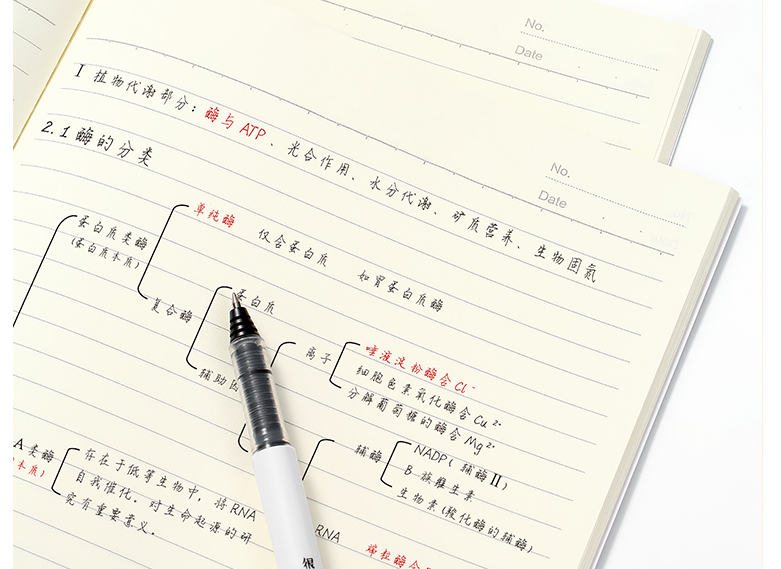 No.
Date
No.
Date
I 植物代谢部分：酶与ATP、光合作用、水分代谢、矿质营养、生物固氮
2.1酶的分类
蛋白质类酶
(蛋白质本质)
单纯酶 仅含蛋白质 如胃蛋白质酶
复合酶
蛋白质
辅助因
离子
唾液淀粉酶含Cl⁻
细胞色素氧化酶含Cu²⁺
分解葡萄糖的酶含Mg²⁺
辅酶
NADP(辅酶II)
B族维生素
生物素(羧化酶的辅酶)
A类酶
本质)
存在于低等生物中，将RNA
自我催化。对生命起源的研
究有重要意义。
RNA